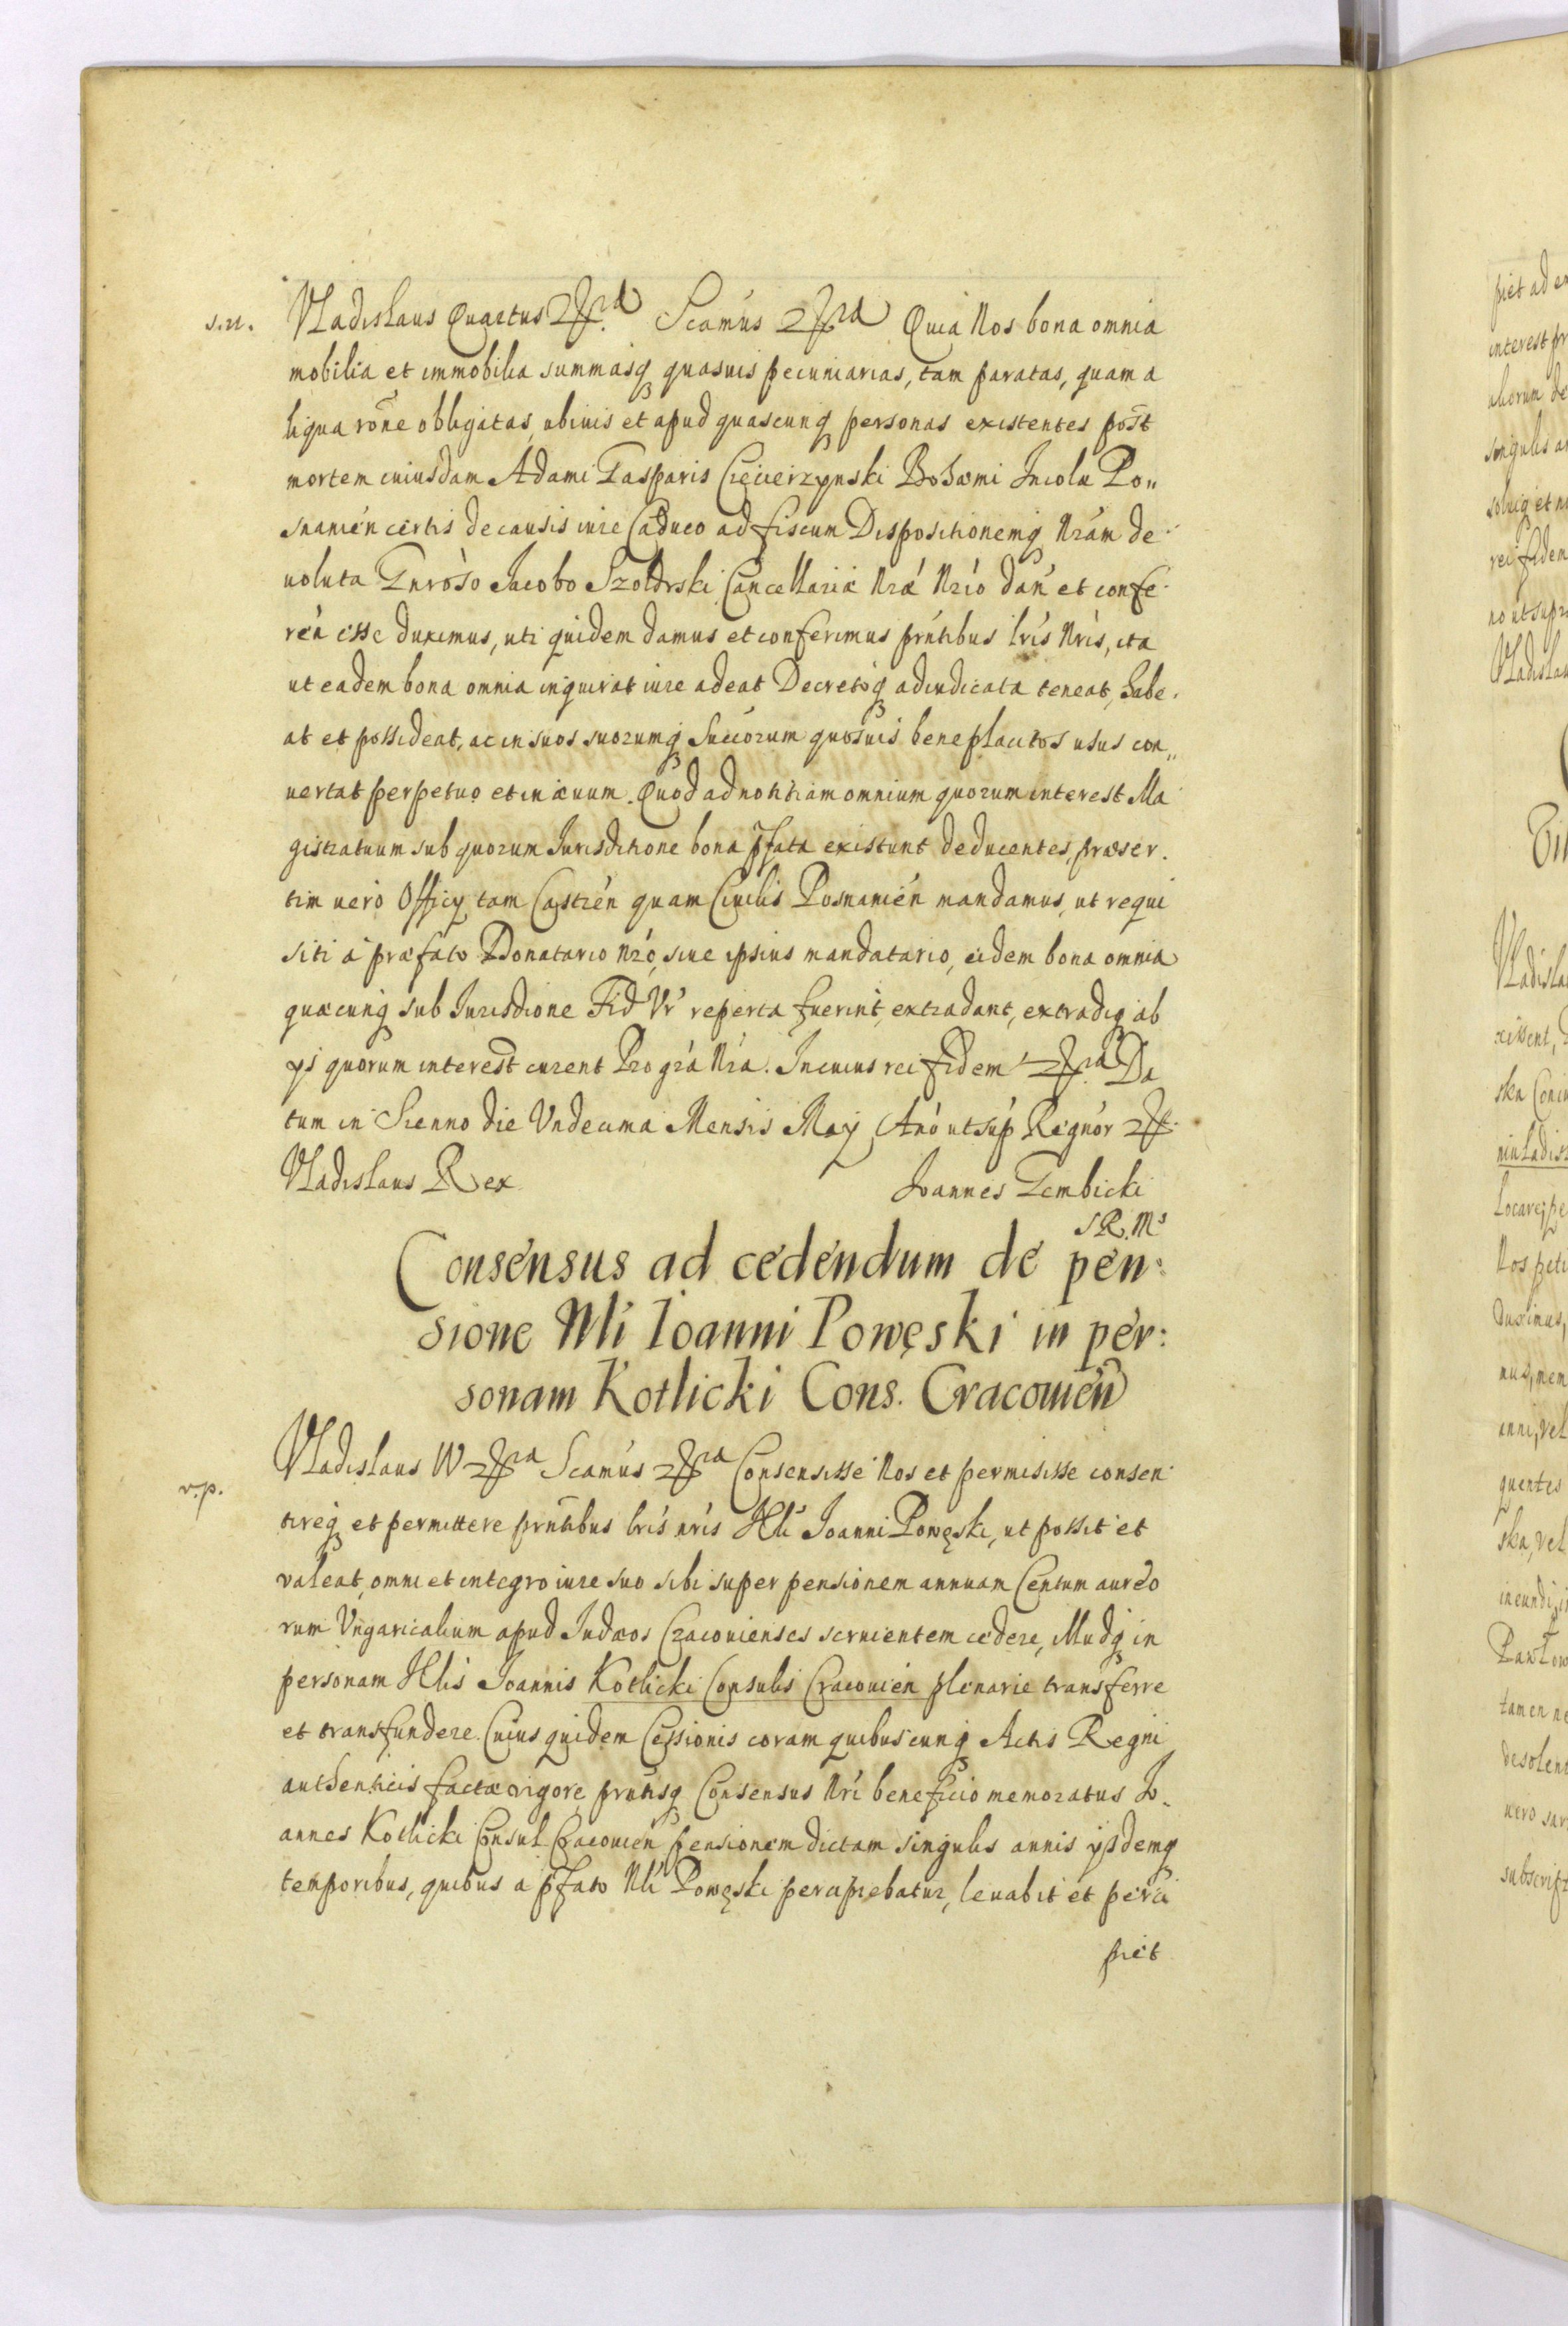 s.n. Vladislaus Quartus etc. Scamús etc. Quia Nos bona omnia
mobilia et immobilia summasq quasuis pecuniarias, tam paratas, quam a
liqua rõne obligatas, ubiuis et apud quascunq personas existentes post
mortem cuiusdam Adami Gasparis Cieцierzynski Bohœmi Incolæ Po„
snamén certis de causis iure Caduco ad fiscum Dispositionemq Nrám de
uoluta Gnróso Iacobo Szoldrski Cancellariæ Nræ Nrío dań et confe
reń esse duximus, uti quidem damus et conferimus prńtibus lrís Nrís, ita
ut eadem bona omnia inquirat iure adeat Decretoq adiudicata teneat, habe
at et possideat, ac in suos suorumq Succorum quosuis beneplacitos usus con„
uertat perpetuo et in æuum. Quod ad notitiam omnium quorum interest Ma
gistratuum sub quorum Iurisditione bona pfata existunt deducentes, præser.
tim uero Officy tam Castrén quam Ciuilis Posnamién mandamus, ut requi
siti á præfato Donatario Nró, siue ipsius mandatario, eidem bona omnia
quæcunq sub Iurisdione Fid Vr reperta fuerint, extradant, extradiq ab
ys quorum interest curent Pro gra Nra. In cuius rei fidem etc. Da
tum in Sienno die Vndecima Mensis May Anó ut sup Regnór etc.
Vladislaus Rex
Ioannes Gembicki
S R. Ms
Consensus ad cedendum de pen:
sione Nli Ioanni Powęski in per:
sonam Kotlicki Cons. Cracouień
v.p. Vladislaus IV etc. Scamús etc. Consensisse Nos et permisisse consen
tireq et permittere prńtibus lrís nrís Nli Ioanni Powęski, ut possit et
valeat, omni et integro iure suo sibi super pensionem annuam Centum aureo
rum Vngaricalium apud Iudæos Cracouienses seruientem cedere, illudq in
personam Nlis Ioannis Kotlicki Consulis Cracouień plenarie transferre
et transfundere. Cuius quidem Cessionis coram quibuscunq Actis Regni
authenticis factæ vigore, prńtisq Consensus Nrí beneficio memoratus Io
annes Kotlicki Consul Cracouień pensionem dictam singulis annis ysdemq
temporibus, quibus a pfato Nli Powęski percipiebatur, leuabit et perci
piet